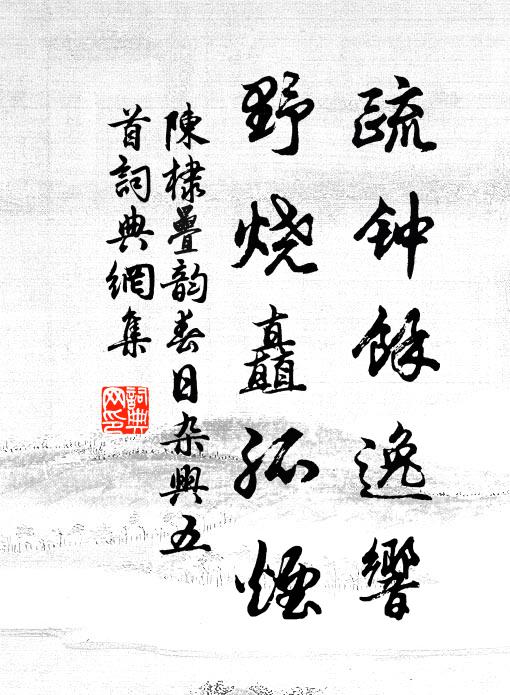 疏钟餘逸響
野烧矗孤煙
陳棣疊韵春日杂興五
首詞典網集
詞典网印